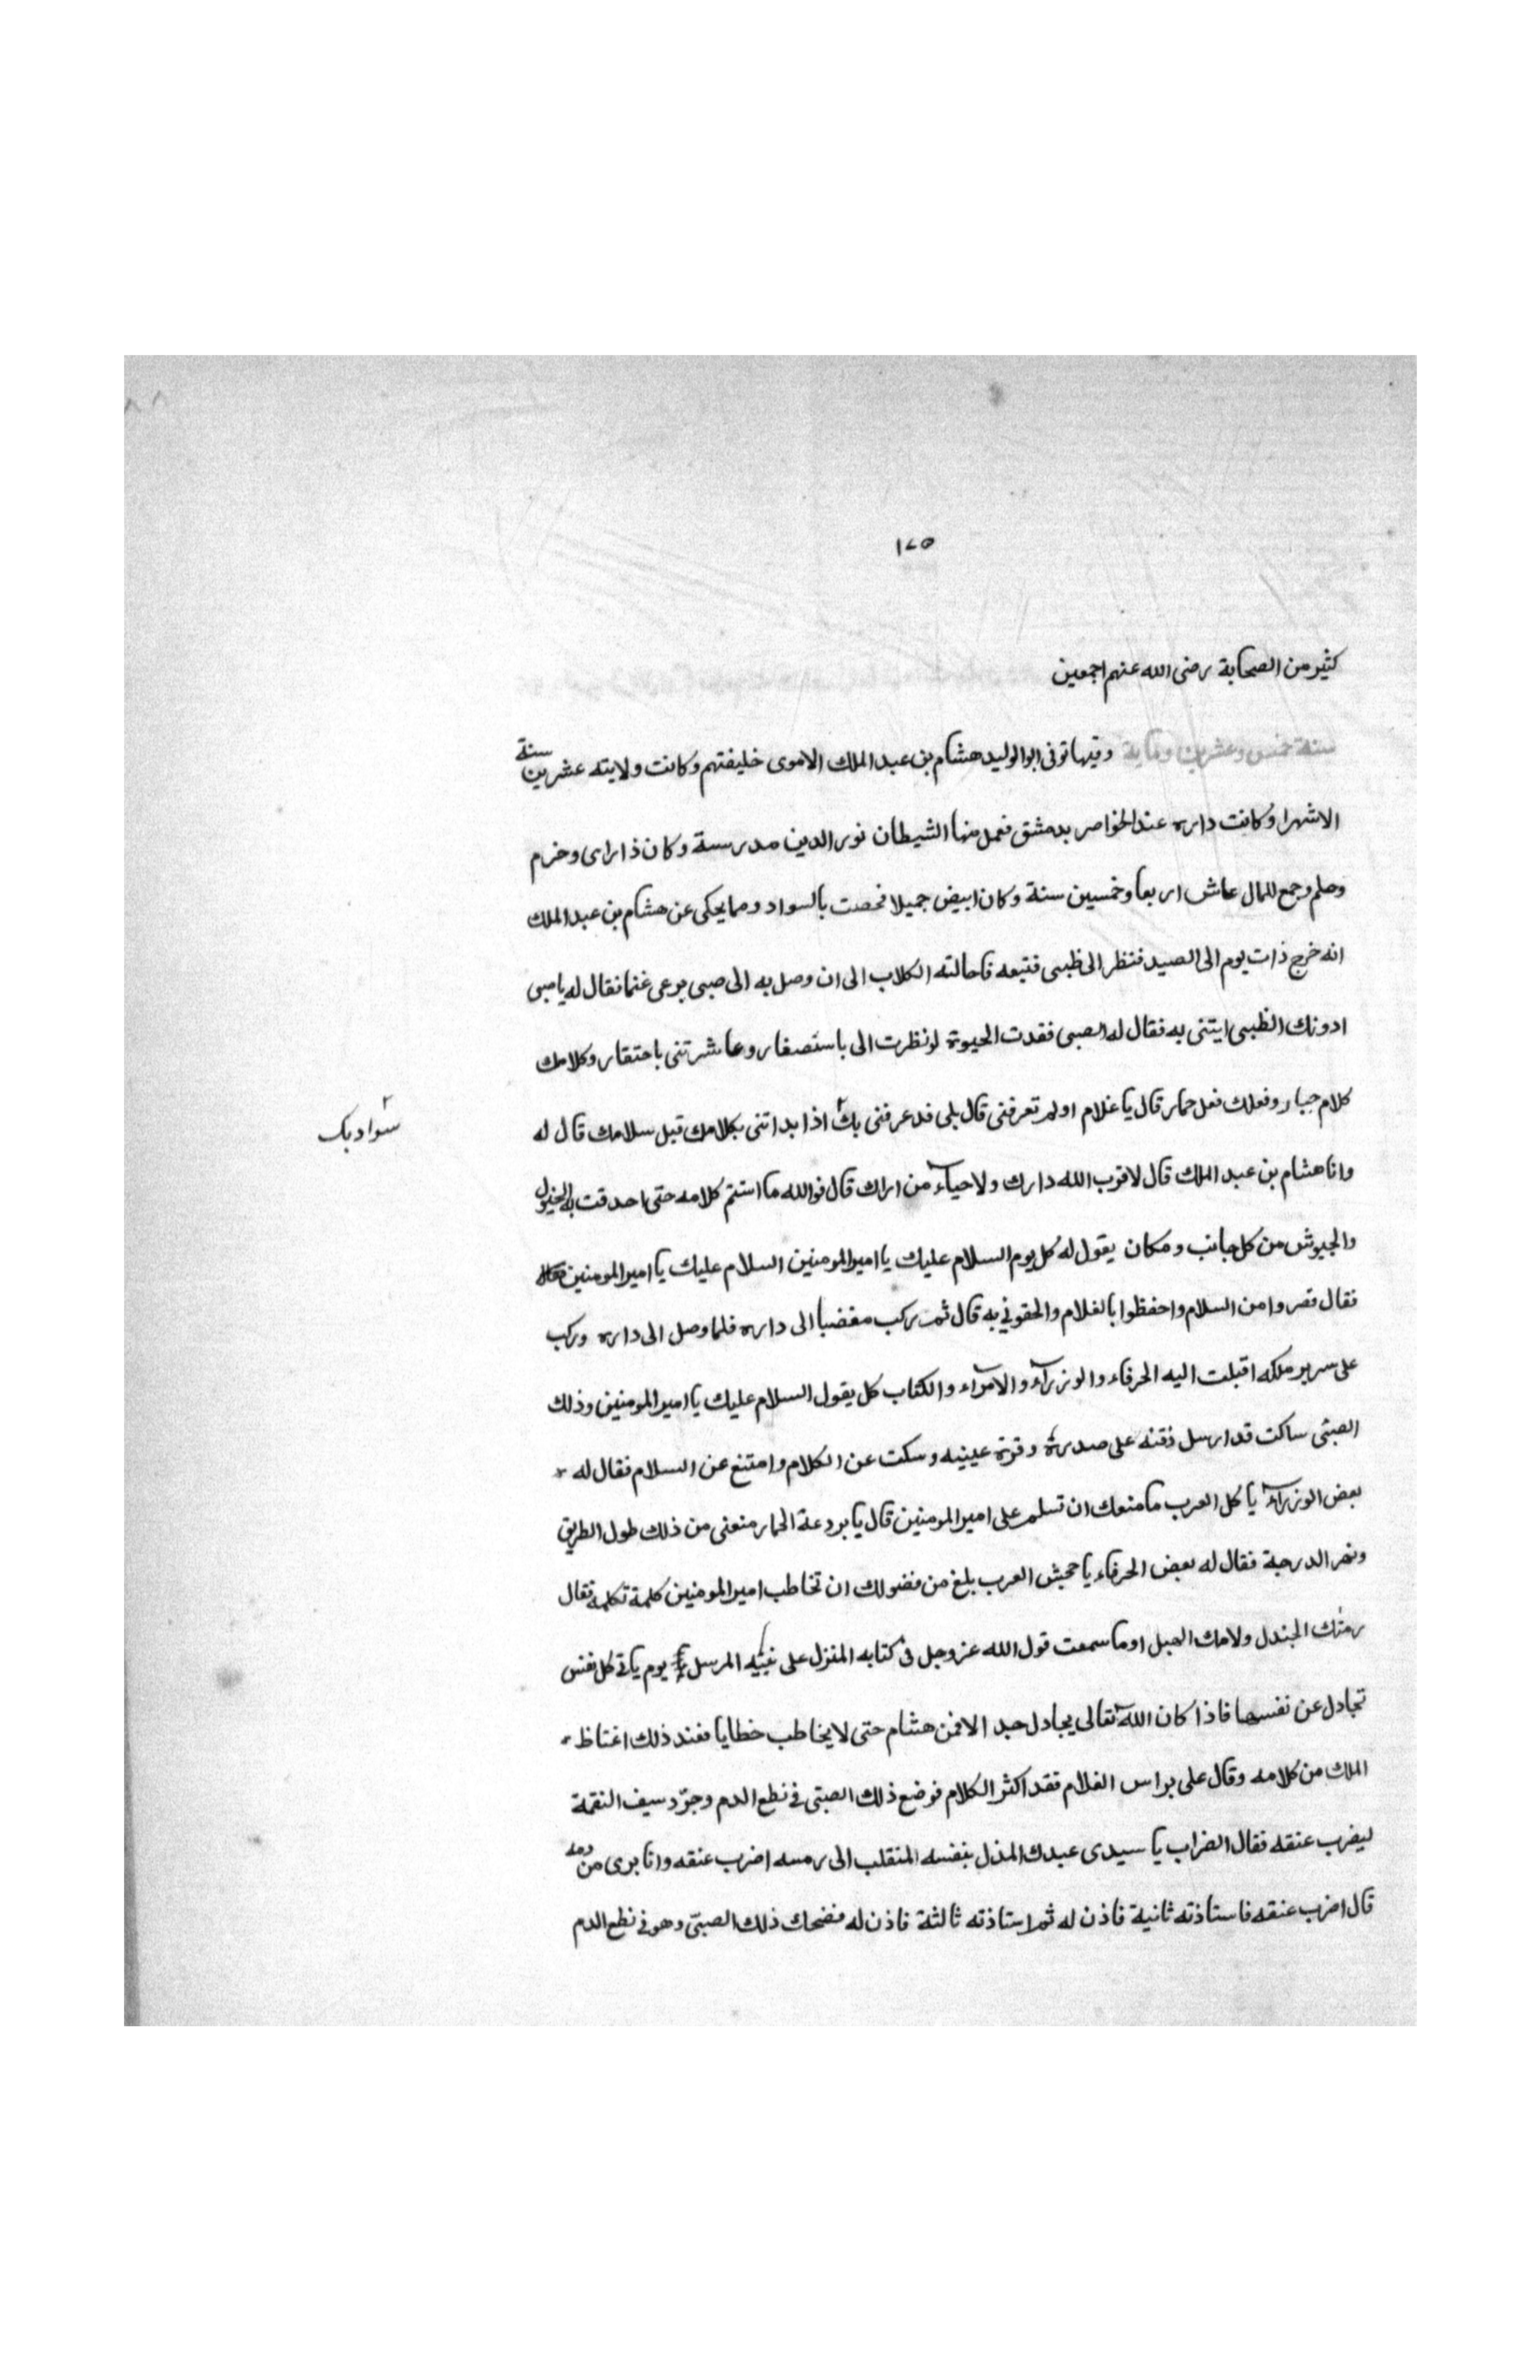 ١٢٥
كثير من الصحابة رضى الله عنهم اجمعين
سنة خمس وعشرين وماية وفيها توفى ابوالوليد هشام بن عبد الملك الاموى خليفتهم وكانت ولايته عشرين سنة
الاشهرا وكانت داره عند الخواصر بدمشق فعمل منها الشيطان نور الدين مدرسة وكان ذا راى وحزم
وحلم وجمع للمال عاش اربعا وخمسين سنة وكان ابيض جميلا فخصت بالسواد ومما يحكى عن هشام بن عبد الملك
انه خرج ذات يوم الى الصيد فنظر الى ظبى فتبعه فاحالته الكلاب الى ان وصل به الى صبى يرعى غنما فقال له ياصبى
ادونك الظبى ايتنى به فقال له الصبى فقدت الحيوة لو نظرت الى باستصغار وعاشرتنى باحتقار وكلامك
كلام جبار وفعلك فعل حمار قال يا غلام اولم تعرفنى قال بلى قد عرفنى بك اذا بداتنى بكلامك قبل سلامك قال له
سوادبك
وانا هشام بن عبد الملك قال لا قرب الله دارك ولا حياء من اراك قال فوالله ما استتم كلامه حتى احدقت به الخيول
والجيوش من كل جانب ومكان يقول له كل يوم السلام عليك يا امير المومنين السلام عليك يا امير المومنين
فقال قصروا من السلام واحفظوا بالغلام والحقونى به قال ثم ركب مغضبا الى داره فلما وصل الى داره وركب
على سرير ملكه اقبلت اليه الحرفاء والوزرآء والامرآء والكتاب كل يقول السلام عليك يا امير المومنين وذلك
الصبى ساكت قد ارسل ذقنه على صدره وقرة عينيه وسكت عن الكلام وامتنع عن السلام فقال له
بعض الوزرآء يا كل العرب ما منعك ان تسلم على امير المومنين قال يا بردعة الحمار منعنى من ذلك طول الطريق
ونهر الدرجة فقال له بعض الحرفاء يا جحيش العرب بلغ من فضولك ان تخاطب امير المومنين كلمة تكلمه فقال
رمتك الجندل ولامك الهبل اوما سمعت قول الله عز وجل فى كتابه المنزل على نبيه المرسل يوم ياتى كل نفس
تجادل عن نفسها فاذا كان الله تعالى يجادل جدالا فمن هشام حتى لا يخاطب خطابا فعند ذلك اغتاظ
الملك من كلامه وقال على براس الغلام فقد اكثر الكلام فوضع ذلك الصبى فى نطع الدم وجرّد سيف النقمة
ليضرب عنقه فقال الضراب يا سيدى عبدك المذل بنفسه المنقلب الى رمسه اضرب عنقه وانا برى من دمه
قال اضرب عنقه فاستاذنه ثانية فاذن له ثم استاذنه ثالثة فاذن له فضحك ذلك الصبىّ وهو فى نطع الدم